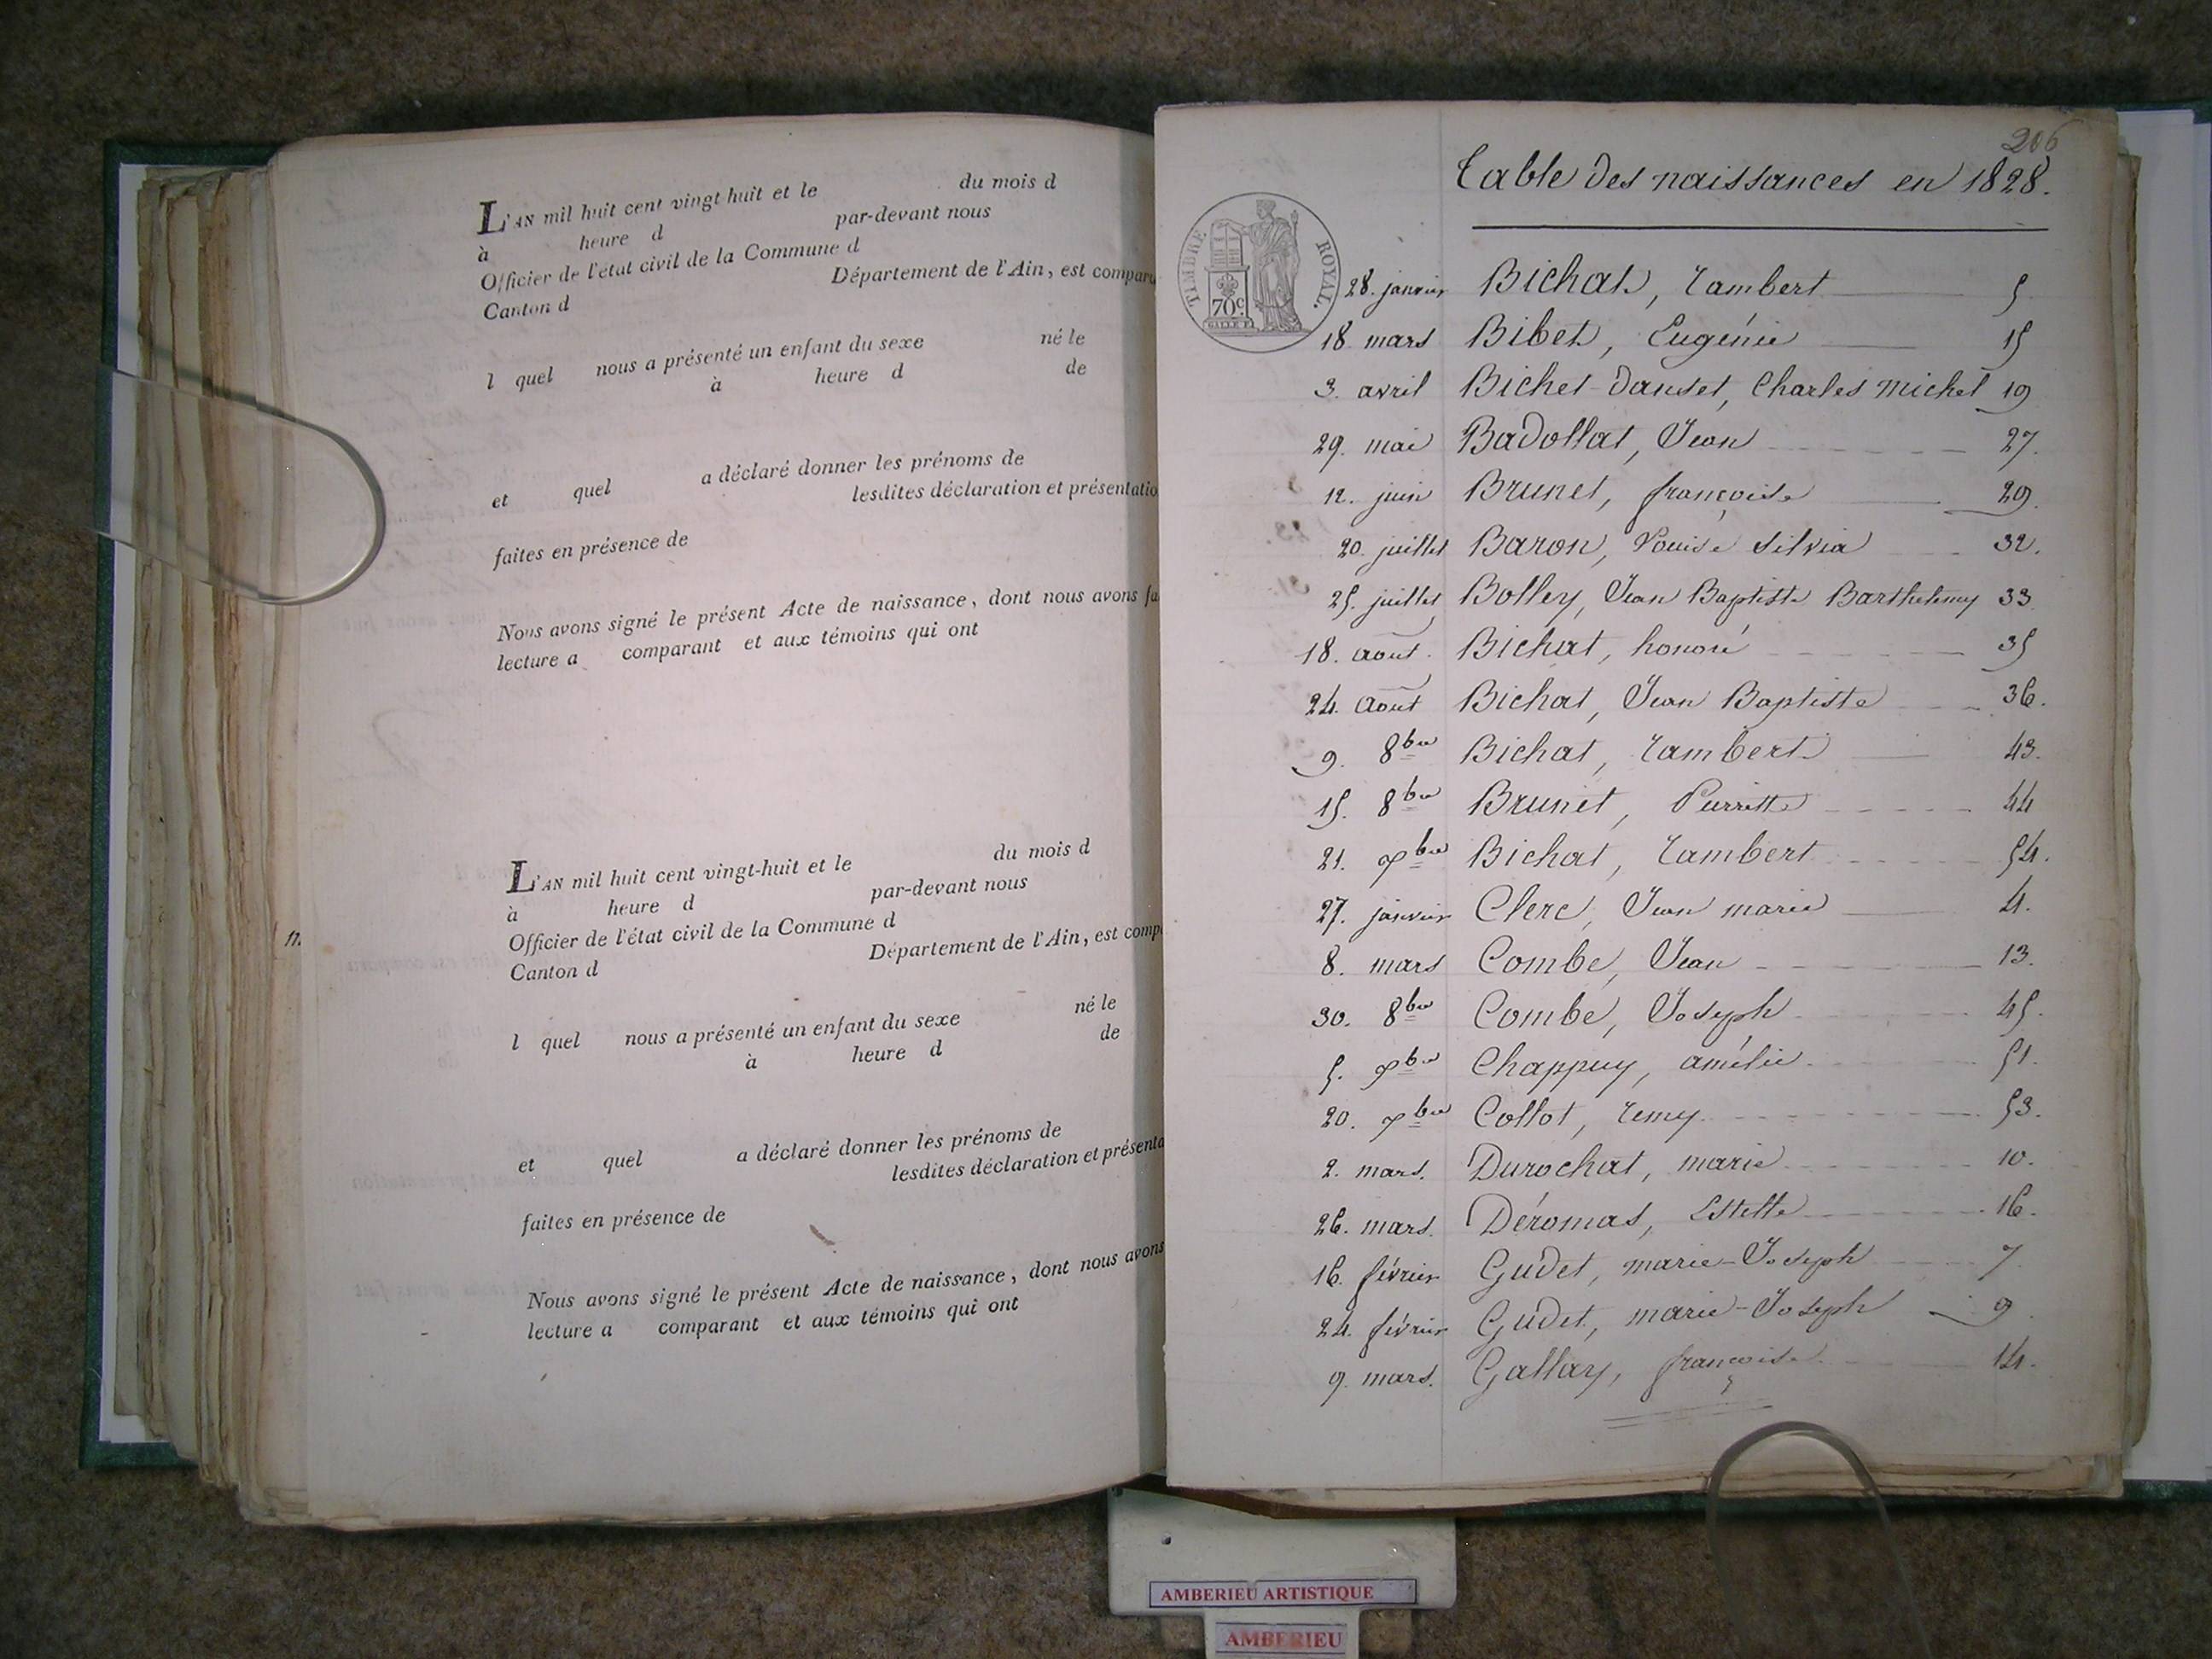 L'AN mil huit cent vingt-huit et le du mois d
à heure d par-devant nous
Officier de l'état civil de la Commune d
Canton d Département de l'Ain, est comparu
l quel nous a présenté un enfant du sexe né le
à heure d de
et quel a déclaré donner les prénoms de
lesdites déclaration et présentatio
faites en présence de
Nous avons signé le présent Acte de naissance, dont nous avons fa
lecture a comparant et aux témoins qui ont
L'AN mil huit cent vingt-huit et le du mois d
à heure d par-devant nous
Officier de l'état civil de la Commune d
Canton d Département de l'Ain, est comp
l quel nous a présenté un enfant du sexe né le
à heure d de
et quel a déclaré donner les prénoms de
lesdites déclaration et présenta
faites en présence de
Nous avons signé le présent Acte de naissance, dont nous avons
lecture a comparant et aux témoins qui ont
206
Table des naissances en 1828.
TIMBRE ROYAL.
70c
28. janvier Bichat, Lambert 5
18 mars Bibet, Eugénie 15
3. avril Bichet-Danset, Charles Michel 19
29. mai Badollat, Jean 27.
12. juin Brunet, françoise 29.
20. juillet Baron, Louise Silvia 32.
25. juillet Bolley, Jean Baptiste Barthelemy 33
18. août. Bichat, honoré 35
24. Août Bichat, Jean Baptiste 36.
9. 8bre Bichat, Lambert 43.
15. 8bre Brunet, Pierrette 44
21. Xbre Bichat, Lambert 54.
27. janvier Clerc, Jean marie 4.
8. mars Combe, Jean 13.
30. 8bre Combe, Joseph 45.
5. Xbre Chappuy, amélie 51.
20. Xbre Collot, remy 53.
2. mars. Durochat, marie 10.
26. mars. Déromas, Estelle 16.
16. février Gudet, marie-Joseph 7
24. février Gudet, marie-Joseph 9.
9. mars. Gallay, françoise 14.
AMBERIEU ARTISTIQUE
AMBERIEU